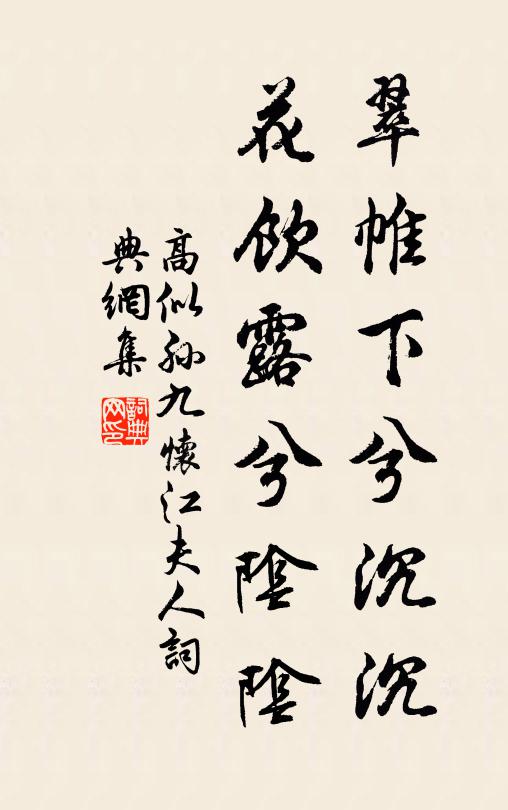 翠帷下兮沉沉
花飲露兮陰陰
高似孙九懷江夫人詞
典網集
詞典
网印